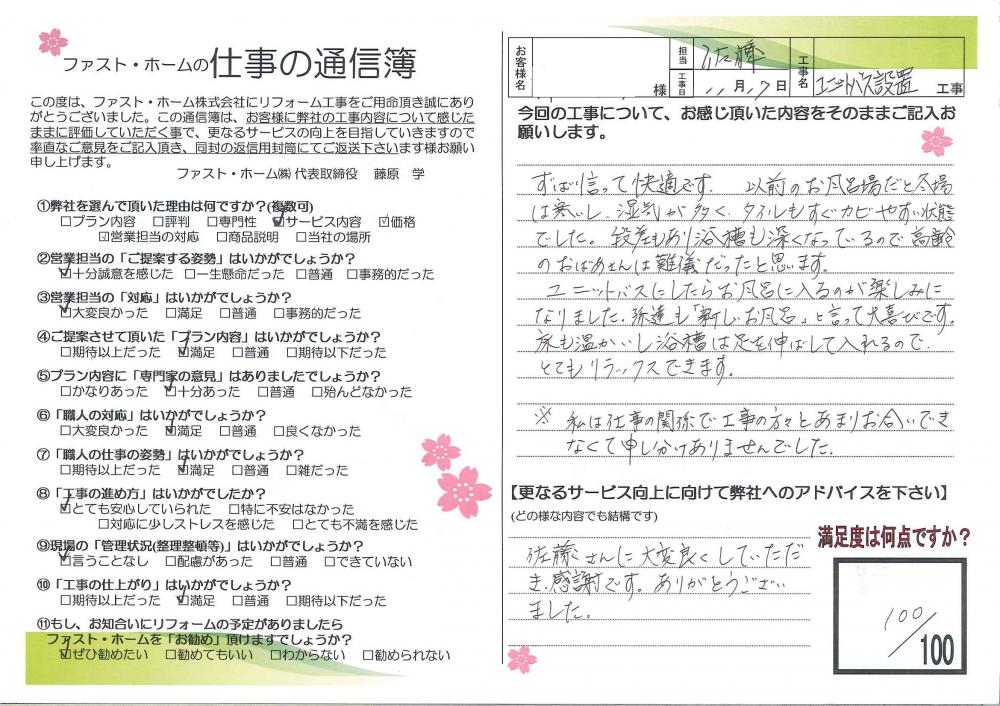 ファスト・ホームの仕事の通信簿
この度は、ファスト・ホーム株式会社にリフォーム工事をご用命頂き誠にあり
がとうございました。この通信簿は、お客様に弊社の工事内容について感じた
ままに評価していただく事で、更なるサービスの向上を目指していきますので
率直なご意見をご記入頂き、同封の返信用封筒にてご返送下さいます様お願い
申し上げます。
ファスト・ホーム㈱ 代表取締役 藤原 学
①弊社を選んで頂いた理由は何ですか?(複数可)
□プラン内容 □評判 □専門性 ☑サービス内容 ☑価格
☑営業担当の対応 □商品説明 □当社の場所
②営業担当の「ご提案する姿勢」はいかがでしょうか?
☑十分誠意を感じた □一生懸命だった □普通 □事務的だった
③営業担当の「対応」はいかがでしょうか?
☑大変良かった □満足 □普通 □事務的だった
④ご提案させて頂いた「プラン内容」はいかがでしょうか?
□期待以上だった ☑満足 □普通 □期待以下だった
⑤プラン内容に「専門家の意見」はありましたでしょうか?
□かなりあった ☑十分あった □普通 □殆んどなかった
⑥「職人の対応」はいかがでしょうか?
□大変良かった ☑満足 □普通 □良くなかった
⑦「職人の仕事の姿勢」はいかがでしょうか?
□期待以上だった ☑満足 □普通 □雑だった
⑧「工事の進め方」はいかがでしたか?
☑とても安心していられた □特に不安はなかった
□対応に少しストレスを感じた □とても不満を感じた
⑨現場の「管理状況(整理整頓等)」はいかがでしょうか?
☑言うことなし □配慮があった □普通 □できていない
⑩「工事の仕上がり」はいかがでしょうか?
□期待以上だった ☑満足 □普通 □期待以下だった
⑪もし、お知合いにリフォームの予定がありましたら
ファスト・ホームを「お勧め」頂けますでしょうか?
☑ぜひ勧めたい □勧めてもいい □わからない □勧められない
お客様名 様 担当 佐藤 工事日 11月17日 工事名 ユニットバス設置 工事
今回の工事について、お感じ頂いた内容をそのままご記入お
願いします。
ずばり言って快適です。以前のお風呂場だと冬場
は寒いし、湿気が多く、タイルもすぐカビやすい状態
でした。段差もあり浴槽も深くなっているので高齢
のおばあさんは難儀だったと思います。
ユニットバスにしたらお風呂に入るのが楽しみに
なりました。孫達も「新しいお風呂」と言って大喜びです。
床も温かいし浴槽は足を伸ばして入れるので、
とてもリラックスできます。
※ 私は仕事の関係で工事の方々とあまりお会いでき
なくて申し分けありませんでした。
【更なるサービス向上に向けて弊社へのアドバイスを下さい】
(どの様な内容でも結構です)
佐藤さんに大変良くしていただ
き、感謝です。ありがとうござい
ました。
満足度は何点ですか?
100/100